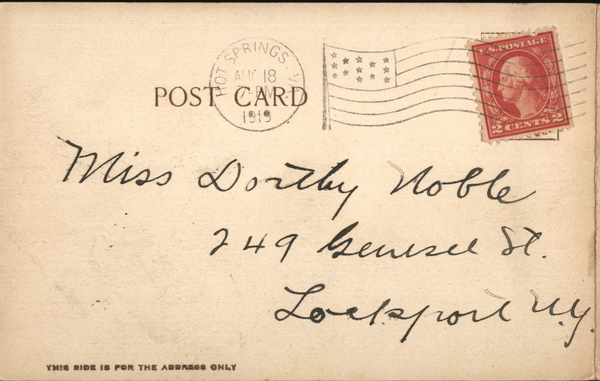 HOT SPRINGS, V
AUG 18
PM
1919
U.S. POSTAGE
2 CENTS 2
POST CARD
Miss Dorthy Noble
249 Genesee St.
Lockport N.Y.
THIS SIDE IS FOR THE ADDRESS ONLY